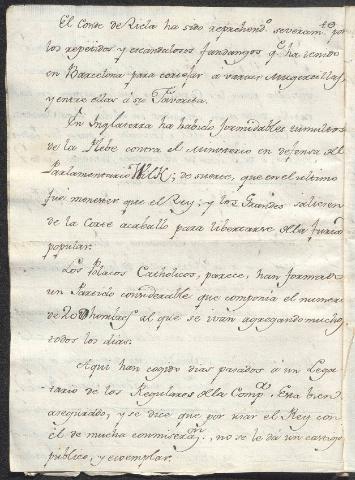 40
El Conde de Ricla ha sido reprehendo. severamte. por
los repetidos y escandalosos fandangos qe. ha tenido
en Barcelona para cortejar a varias Mugercillas
y entre ellas á su Favorita.
En Inglaterra ha habido formidables tumultos
de la Plebe contra el Ministerio en defensa del
Parlamentario Wilk; de suerte, que en el ultimo
fué menester que el Rey; y los Grandes saliesen
de la Corte acaballo para libertarse de la furia
popular.
Los Polacos Catholicos, parece, han formado
un Partido considerable que componia el numero
de 20 hombres al que se ivan agregando muchos
todos los dias.
Aqui han cogido dias pasados á un Lega
-tario de los Regulares de la Compa. Esta bien
asegurado, y se dice que por usar el Rey con
él de mucha conmiseraon., no se le da un castigo
publico, y exemplar.